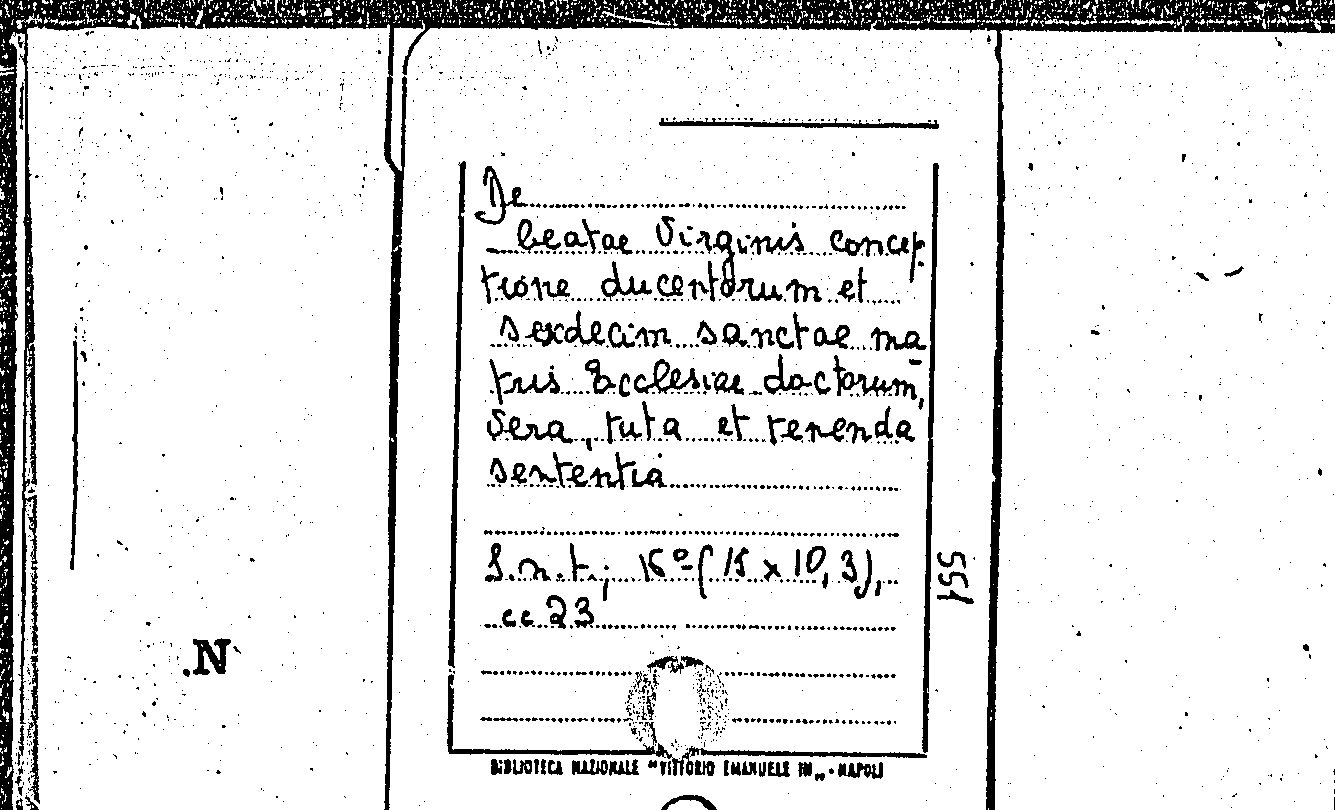 De
beatae Virginis concep-
tione ducentorum et
sexdecim sanctae ma-
tris Ecclesiae doctorum,
vera, tuta et tenenda
sententia
S.n.t.; 16º (15 x 10,3),
cc 23
551
.N
BIBLIOTECA NAZIONALE "VITTORIO EMANUELE III„ - NAPOLI